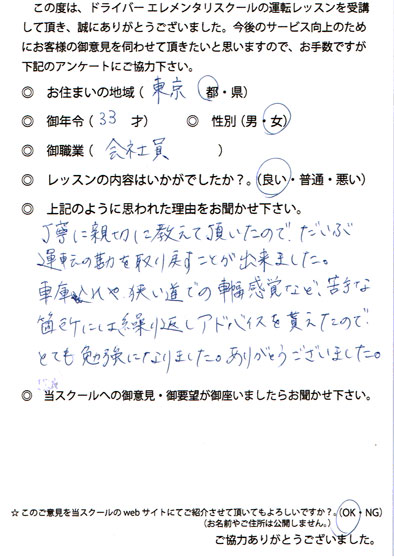 この度は、ドライバー エレメンタリスクールの運転レッスンを受講
して頂き、誠にありがとうございました。今後のサービス向上のため
にお客様の御意見を伺わせて頂きたいと思いますので、お手数ですが
下記のアンケートにご協力下さい。
◎ お住まいの地域（ 東京 都・県）
◎ 御年令（ 33 才） ◎ 性別（男・女）
◎ 御職業（ 会社員 ）
◎ レッスンの内容はいかがでしたか？。（良い・普通・悪い）
◎ 上記のように思われた理由をお聞かせ下さい。
丁寧に親切に教えて頂いたので、だいぶ
運転の勘を取り戻すことが出来ました。
車庫入れや、狭い道での車幅感覚など、苦手な
箇所には繰り返しアドバイスを貰えたので
とても勉強になりました。ありがとうございました。
◎ 当スクールへの御意見・御要望が御座いましたらお聞かせ下さい。
☆このご意見を当スクールの web サイトにてご紹介させて頂いてもよろしいですか？。（OK・NG）
（お名前やご住所は公開しません。）
ご協力ありがとうございました。